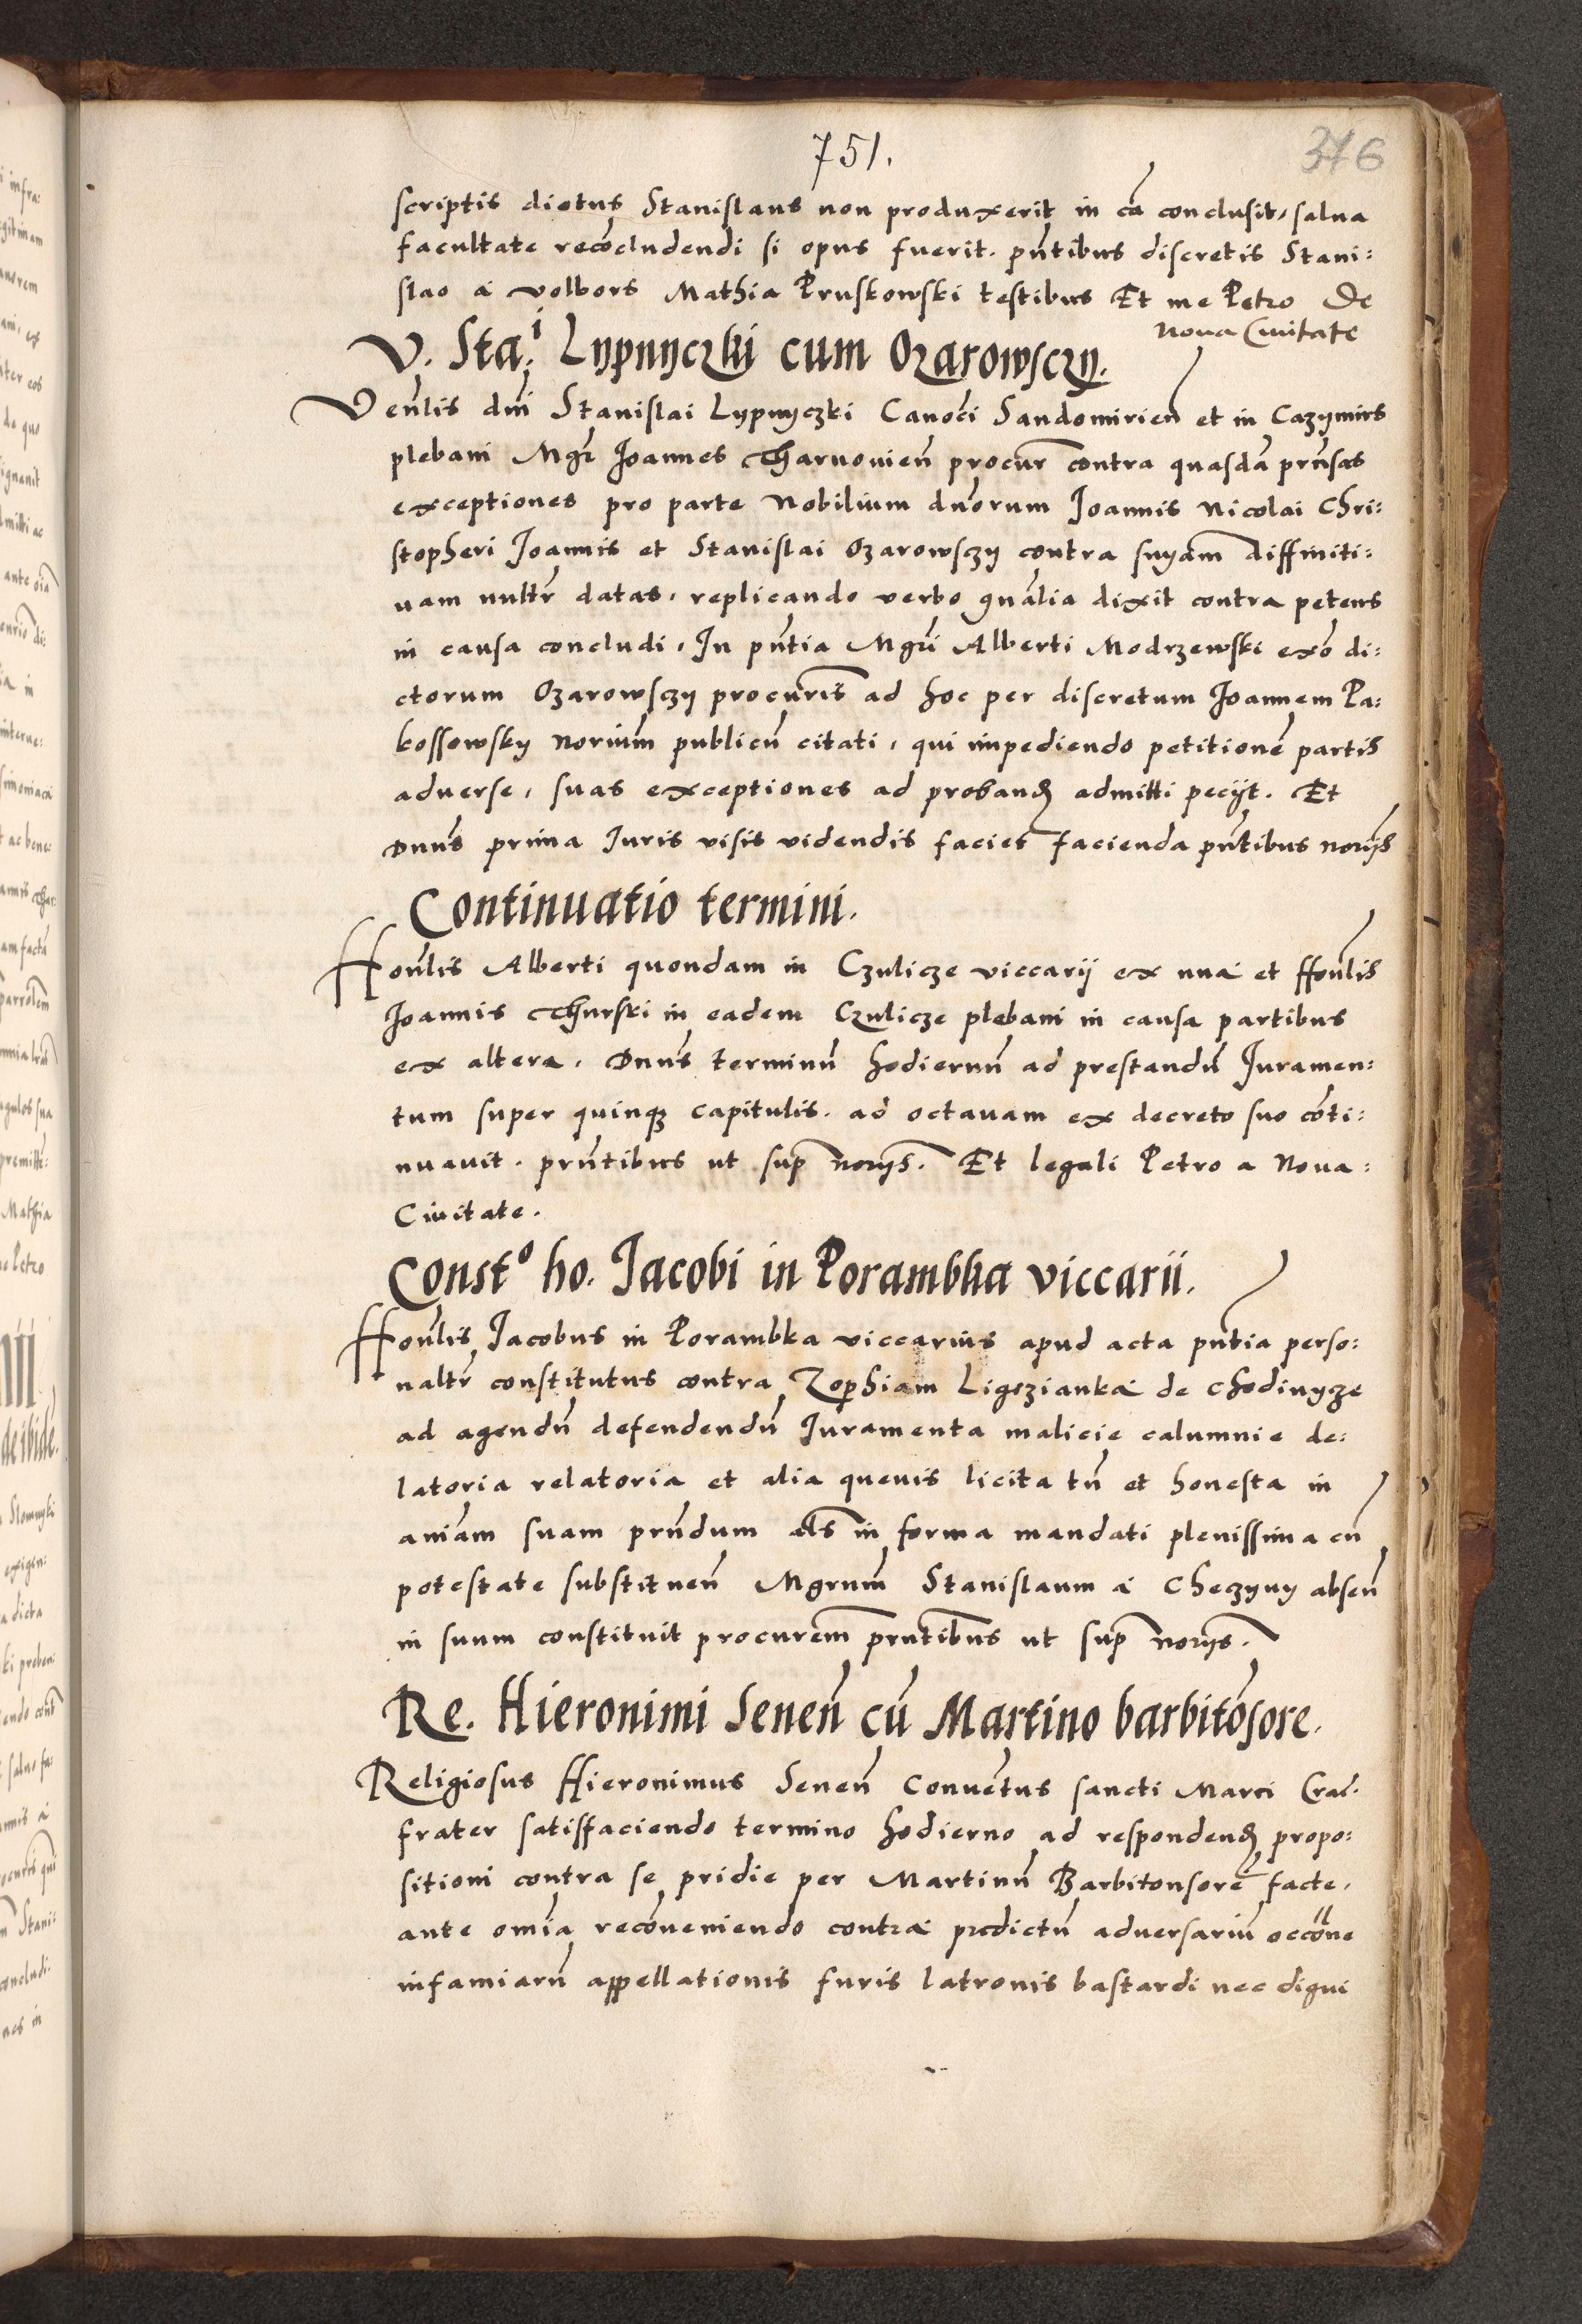 751.
376
scriptis dictus Stanislaus non produxerit in cā conclusit, salua
facultate recōcludendi si opus fuerit. pn̄tibus discretis Stani:
slao a Volbors Mathia Pruskowski testibus Et me Petro De
Noua Ciuitate
V. Sta.i Lypnyczki cum Ozarowsczy.
Ven̄lis dn̄i Stanislai Lypnyczki Canoci Sandomirien̄ et in Cazymirs
plebani Mgr̄ Joannes Tharnouien̄ procur̄ contra quasdā prn̄sas
exceptiones pro parte Nobilium dn̄orum Joannis Nicolai Chri:
stopheri Joannis et Stanislai Ozarowsczy contra suȳam diffiniti:
uam nulltr̄ datas, replicando verbo gn̄alia dixit contra petens
in causa concludi, In pn̄tia Mgr̄i Alberti Modrzewski ex̄o di:
ctorum Ozarowsczy procuris̄ ad hoc per discretum Joannem Pa:
kossowsky Norium̄ publicū citati, qui impediendo petitionē partis
aduerse, suas exceptiones ad proband̄ admitti peciit. Et
Dnn̄s prima Iuris visis videndis faciet facienda pn̄tibus noriis
Continuatio termini.
Hon̄lis Alberti quondam in Czulicze viccarii ex una et Hon̄lis
Joannis Thurski in eadem Czulicze plebani in causa partibus
ex altera, Dnn̄s terminū hodiernū ad prestandū Iuramen:
tum super quinq3 capitulis. ad octauam ex decreto suo cōti:
nuauit. prn̄tibus ut sup̄ noriis. Et legali Petro a Noua:
Ciuitate.
Const.o ho. Jacobi in Porambka viccarii.
Hon̄lis Jacobus in Porambka viccarius apud acta pn̄tia perso:
naltr̄ constitutus contra Zophiam Ligezianka de Chodinycze
ad agendū defendendū Iuramenta malicie calumnie de:
latoria relatoria et alia queuis licita tn̄ et honesta in
aniam̄ suam prn̄dum als̄ in forma mandati plenissima cū
potestate substituen̄ Mgrum̄ Stanislaum a Checzyny absen̄
in suum constituit procurem̄ prn̄tibus ut sup̄ noriis.
Re. Hieronimi Senen̄ cū Martino barbitōsore.
Religiosus Hieronimus Senen̄ Conuētus sancti Marci Crac̄.
frater satisfaciendo termino hodierno ad respondend̄ propo:
sitioni contra se pridie per Martinū Barbitonsorē facte,
ante omīa recōueniendo contra predictū aduersariū occōne
infamiarū appellationis furis latronis bastardi nec digni